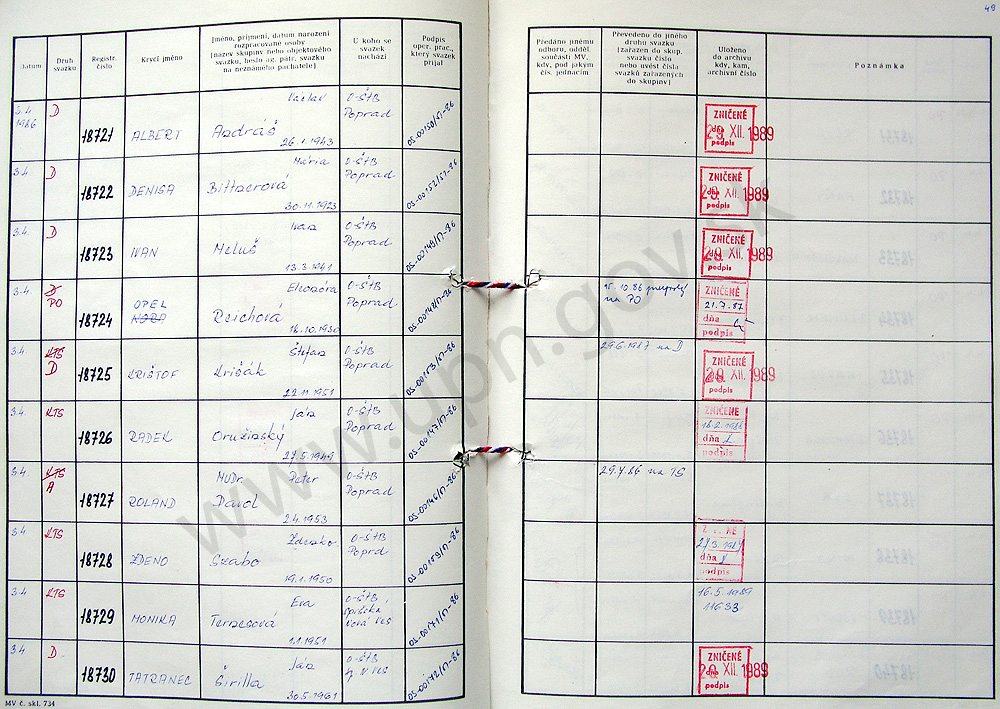 49
Datum
Druh svazku
Registr. číslo
Krycí jméno
Jméno, příjmení, datum narození
rozpracované osoby
(název skupiny nebo objektového
svazku, heslo ag. pátr. svazku
na neznámého pachatele)
U koho se
svazek
nachází
Podpis
oper. prac.,
který svazek
přijal
Předáno jinému
odboru, odděl.
součásti MV,
kdy, pod jakým
čís. jednacím
Převedeno do jiného
druhu svazku
(zařazen do skup.
svazku číslo
nebo uvést čísla
svazků zařazených
do skupiny)
Uloženo
do archivu
kdy, kam,
archivní číslo
Poznámka
3.4. 1986 D 18721 ALBERT Václav Andráš 26.1.1943 O-ŠtB Poprad OS-00150/ST-86 ZNIČENÉ dňa 29. XII. 1989 podpis
3.4. D 18722 DENISA Mária Bittnerová 30.11.1923 O-ŠtB Poprad ZNIČENÉ 29. XII. 1989 podpis
3.4. D 18723 IVAN Ivan Meluš 13.3.1961 O-ŠtB Poprad ZNIČENÉ 29. XII. 1989 podpis
3.4. D PO 18724 OPEL Eleonóra Reichová O-ŠtB Poprad 15.10.86 na PO ZNIČENÉ 21.7.87 dňa podpis
3.4. KTS D 18725 KRIŠTOF Štefan Krišák 22.11.1951 O-ŠtB Poprad 29.6.1987 na D ZNIČENÉ 29. XII. 1989 podpis
3.4. KTS 18726 RADEK Ján Oružinský 27.5.1949 O-ŠtB Poprad ZNIČENÉ dňa podpis
3.4. KTS A 18727 ROLAND MUDr. Peter Pavol 2.4.1953 O-ŠtB Poprad na TS
3.4. KTS 18728 ZDENO Zdenko Szabo 19.1.1950 O-ŠtB Poprad dňa podpis
3.4. KTS 18729 MONIKA Eva 1.1.1951 O-ŠtB Spišská Nová Ves 16.5.1989 11633
3.4. D 18730 TATRANEC Ján Širilla 30.5.1961 O-ŠtB Sp. N. Ves ZNIČENÉ 29. XII. 1989 podpis
MV č. skl. 734
www.upn.gov.sk